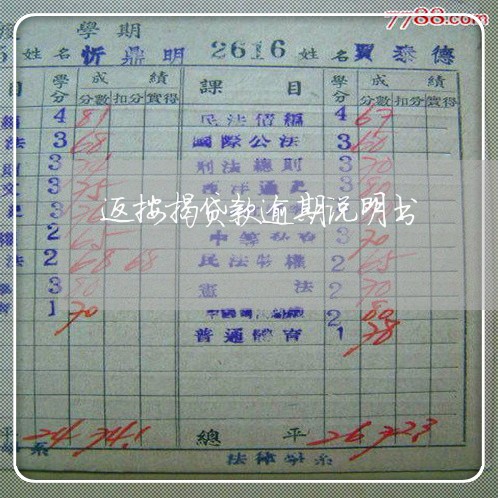 7788.com
學期
姓名 忻鼎明 2616 姓名 賈泰德
目 學分 成績 課目 學分 成績
分數 扣分 實得 分數 扣分 實得
4 81 民法債編 4 67
法 3 68 國際公法 3 60
3 刑法總則 3 70
3 75 西洋通史 3
返按揭贷款逾期说明书
2 65 中等 3 70
法 2 68 68 民法物權 2 65
3 80 憲法 2 70
1 70 2 80
普通體育 1 78
平 24 74.1 總平 26 72.3
系 法律學系